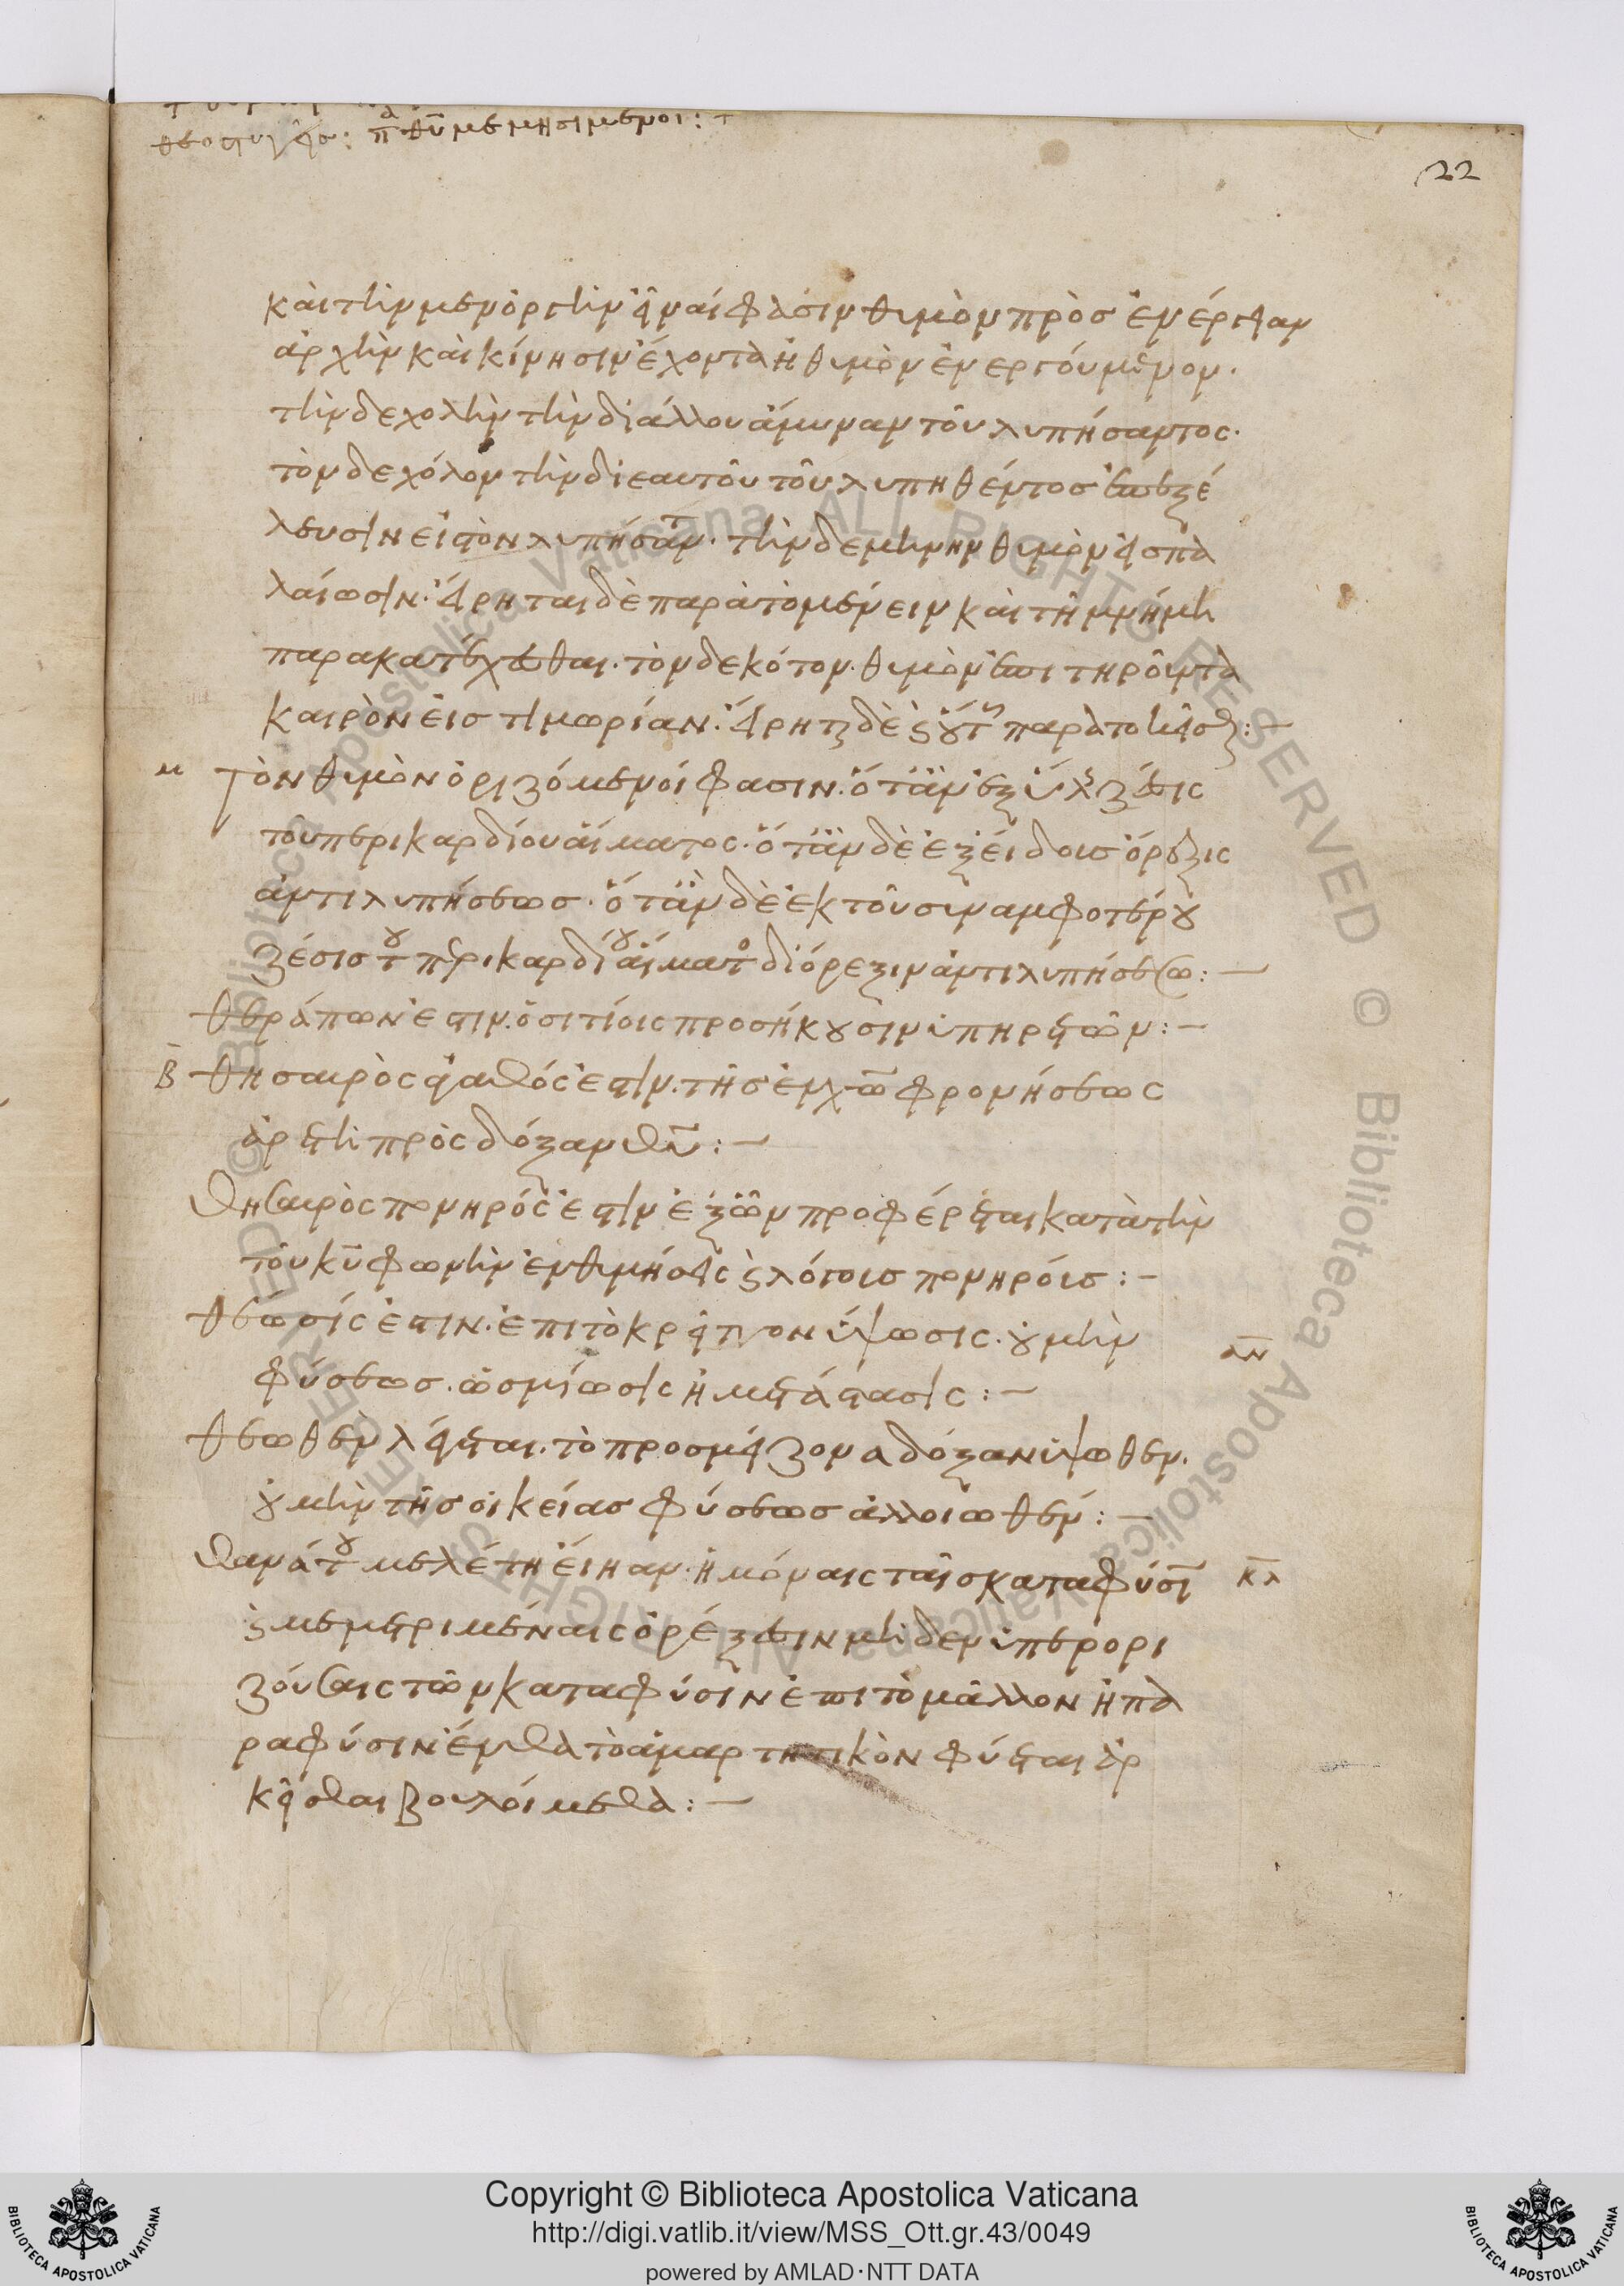 22
καὶ τὴν μὲν ὀργὴν εἶναί φασιν θυμὸν πρὸς ἐνέργειαν
ἀρχὴν καὶ κίνησιν ἔχοντα ἢ θυμὸν ἐνεργούμενον.
τὴν δὲ χολὴν τὴν δι ἄλλου ἄμυναν τοῦ λυπήσαντος.
τὸν δὲ χόλον τὴν δι ἑαυτοῦ τοῦ λυπηθέντος ἐπεξέ
λευσιν εἰς τὸν λυπήσαντ. τὴν δὲ μῆνην θυμὸν εἰς πα
λαίωσιν. εἴρηται δὲ παρὰ τὸ μένειν καὶ τῇ μνήμῃ
παρακατέχεσθαι. τὸν δὲ κότον. θυμὸν ἐπιτηροῦντα
καιρὸν εἰς τιμωρίαν. εἴρηται δὲ καὶ οὗτος παρὰ τὸ κεῖσθαι:—
Τὸν θυμὸν ὁριζόμενοί φασιν. ὅταν μὲν ἐξ ὕλης ζέσις
τοῦ περικαρδίου αἵματος. ὅταν δὲ ἐξ εἴδους ὄρεξις
ἀντιλυπήσεως. ὅταν δὲ ἐκ τοῦ συναμφοτέρου
ζέσις τοῦ περικαρδίου αἵματος δι ὄρεξιν ἀντιλυπήσεως:—
θεράπων ἐστιν. ὁ σιτίοις προσήκουσιν ὑπηρετῶν:—
Β θησαυρὸς ἀγαθός ἐστιν. τῆς ἐν χῶ φρονήσεως
ἀρετὴ πρὸς δόξαν θυ:—
θησαυρὸς πονηρός ἐστιν ἐξ ὧν προφέρεται κατὰ τὴν
τοῦ κυ φωνὴν ἐνθυμήσεις καὶ λόγοις πονηροῖς:—
θέωσίς ἐστιν. ἐπὶ τὸ κρεῖττον ὕψωσις. οὐ μὴν
φύσεως. ὡς μίωσις ἢ μετάστασις:—
θεωθὲν λέγεται. τὸ προσμεῖζον α δόξαν ὑψωθεν.
οὐ μὴν τῆς οἰκείας φύσεως ἀλλοιωθέν:—
θανάτου μελέτη εἴη ἂν. ἢ μόναις ταῖς κατα φύσι
καὶ μεμετριμέναις ὀρέξεσιν μηδὲν ὑπερορι
ζούσαις τῶν κατα φύσιν ἐπὶ τὸ μᾶλλον ἢ πα
ρα φύσιν ἔνθα τὸ ἁμαρτητικὸν φύεται ἀρ
κεῖσθαι βουλοίμεθα:—
Copyright © Biblioteca Apostolica Vaticana
http://digi.vatlib.it/view/MSS_Ott.gr.43/0049
powered by AMLAD·NTT DATA